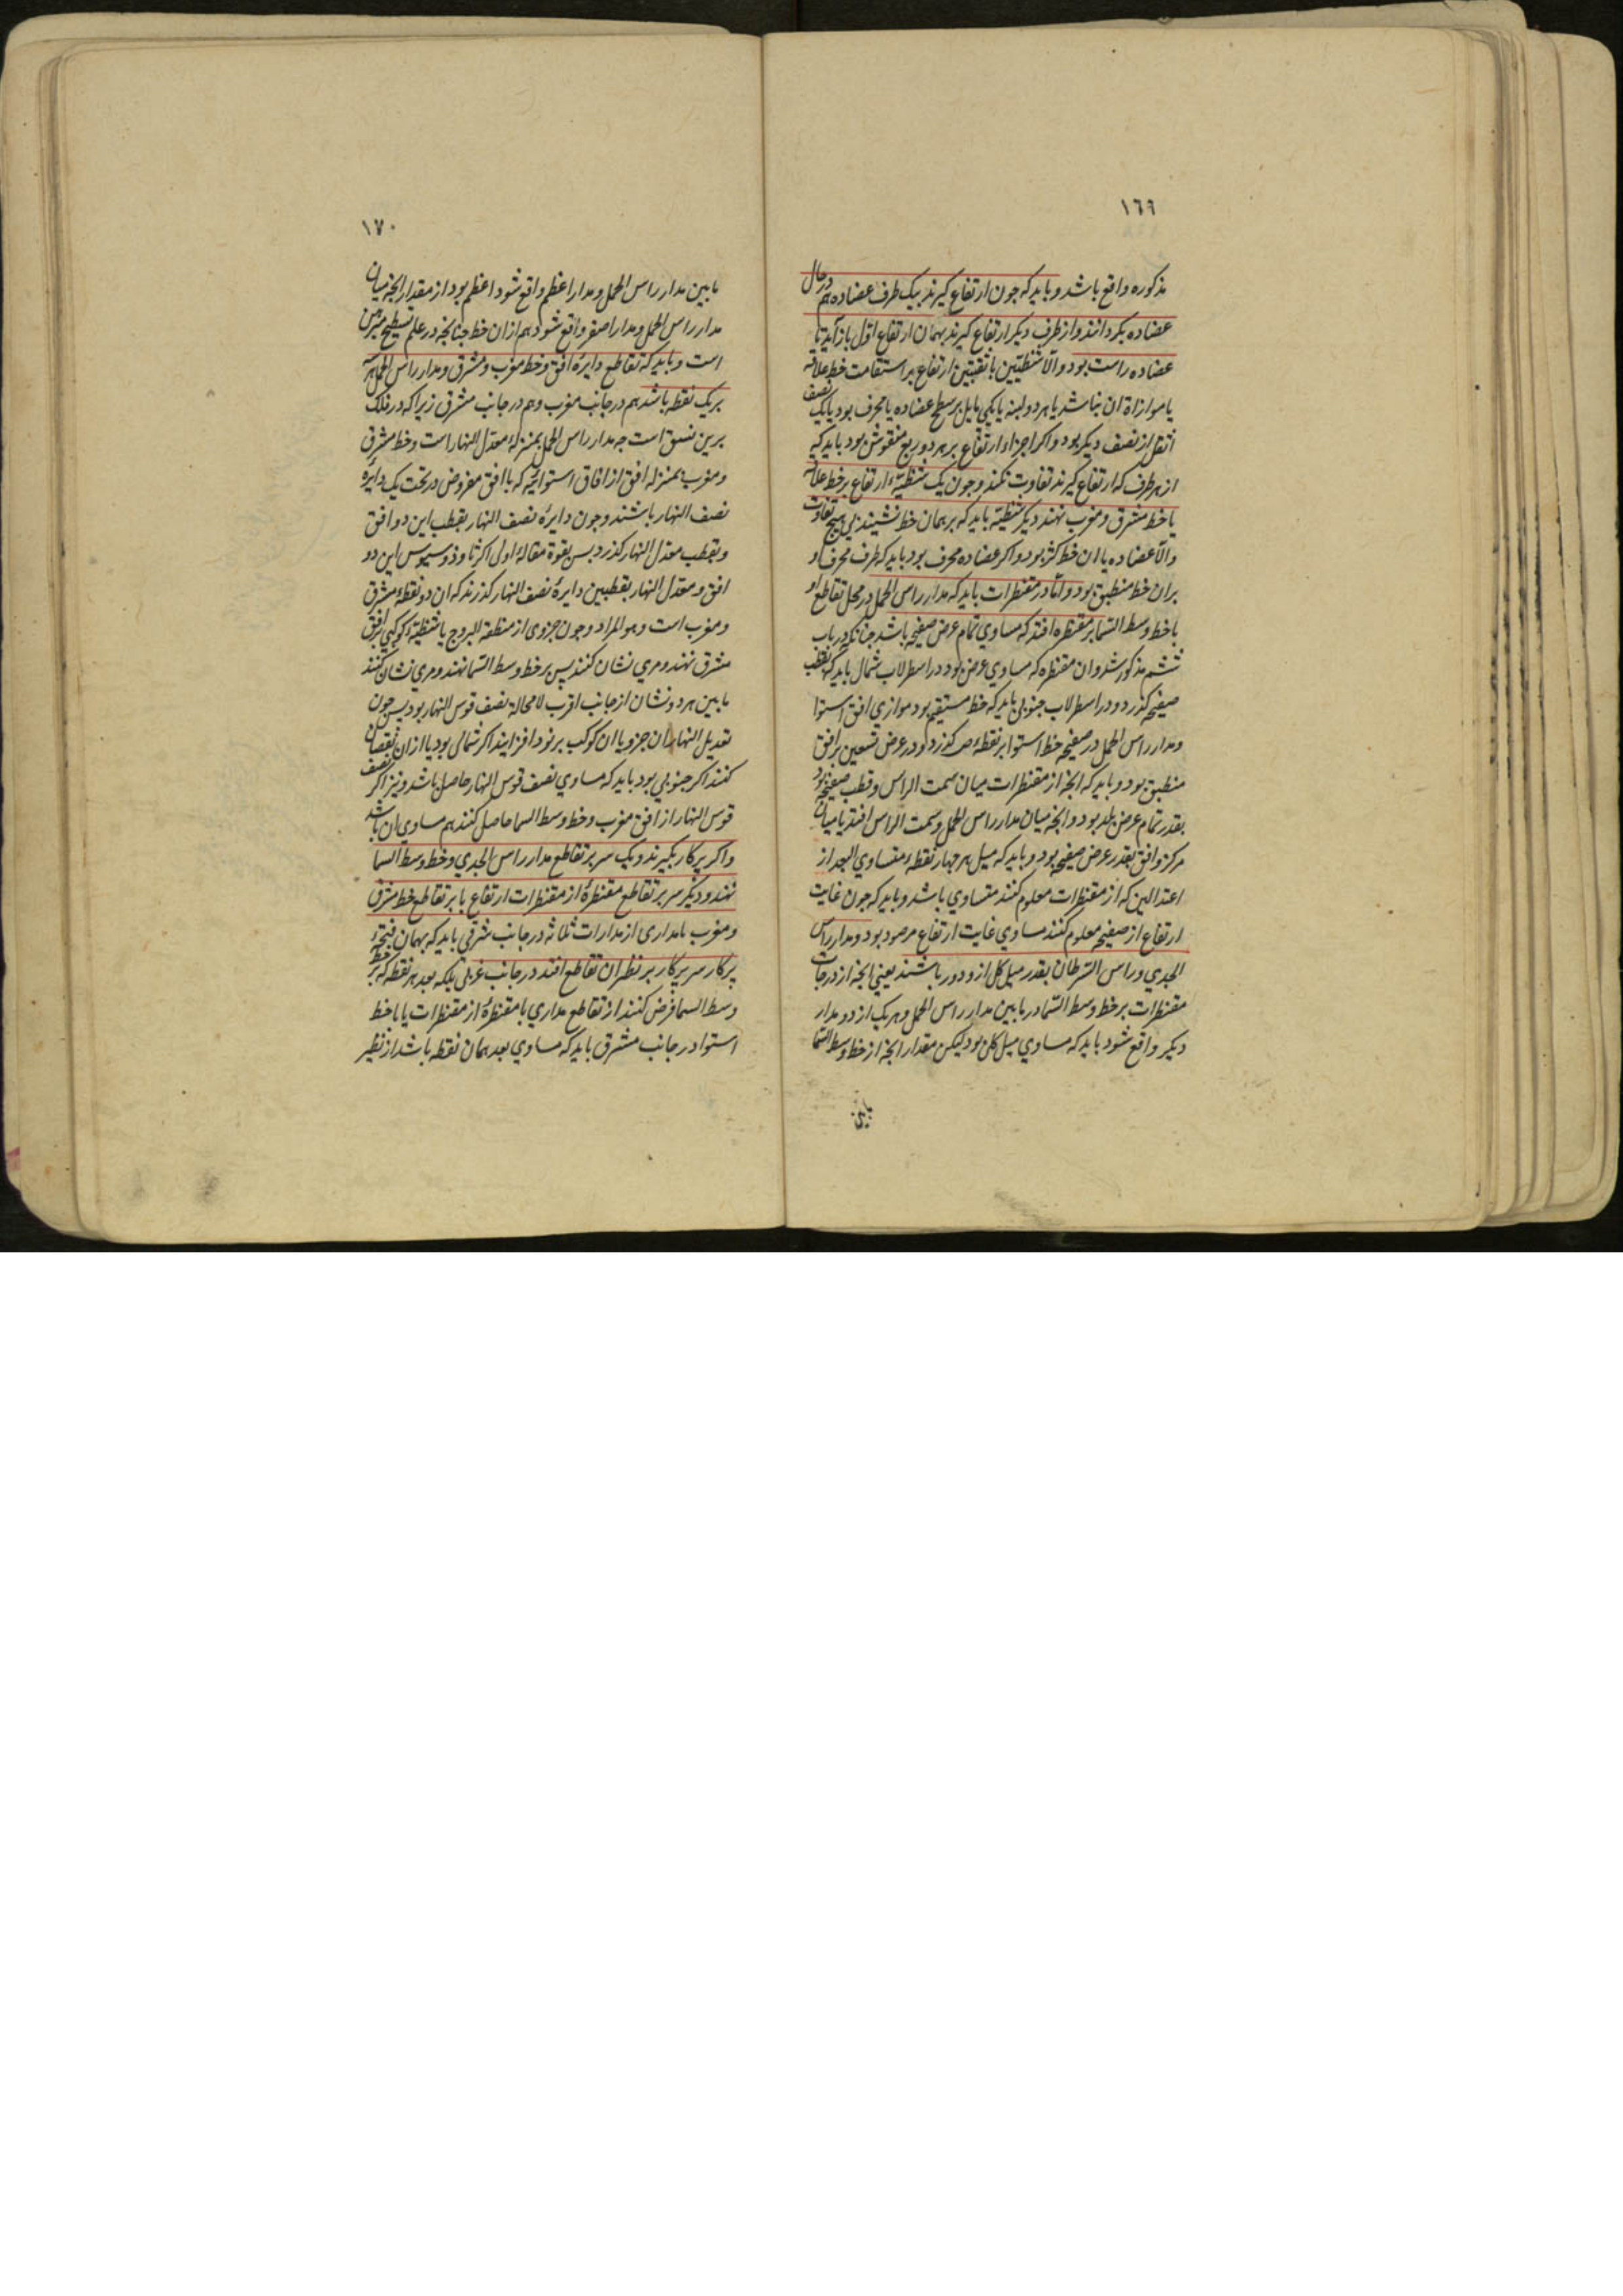 ١٦٩
مذکوره واقع باشد و باید که جون ارتفاع کیرند بیک طرف عضاده هم در حال
عضاده بکردانند و از طرف دیکر ارتفاع کیرند بهمان ارتفاع اول باز آید تا
عضاده راست بود و الا شظیتین با ثقبتین ارتفاع بر استقامت خط علاقه
یا موازاة ان نباشد یا هر دو لبنه یا یکی مایل بر سطح عضاده یا محرف بود یا یک نصف
اثقل از نصف دیکر بود و اکر اجزاء ارتفاع بر هر دو ربع منقوش بود باید که
از هر طرف که ارتفاع کیرند تفاوت نکند و جون یک شظیهٔ ارتفاع بر خط علاقه
یا خط مشرق و مغرب نهند دیکر شظیه باید که بر همان خط نشیند بی هیچ تفاوت
و الا عضاده یا ان خط کژ بود و اکر عضاده محرف بود باید که طرف محرف او
بران خط منطبق بود و اما در مقنطرات باید که مدار راس الحمل در محل تقاطع او
با خط وسط السما بر مقنطره افتد که مساوی تمام عرض صفیحه باشد جنانکه در باب
ششم مذکور شد و ان مقنطره که مساوی عرض بود در اسطرلاب شمالی باید که بقطب
صفیحه کذرد و در اسطرلاب جنوبی باید که خط مستقیم بود موازی افق استوا
و مدار راس الحمل در صفیحه خط استوا بر نقطهٔ ص کذرد و در عرض تسعین بر افق
منطبق بود و باید که انجه از مقنطرات میان سمت الراس و قطب صفیحه بود
بقدر تمام عرض بلد بود و انجه میان مدار راس الحمل و سمت الراس افتد یا میان
مرکز و افق بقدر عرض صفیحه بود و باید که میل هر جهار نقطهٔ متساوی البعد از
اعتدالین که از مقنطرات معلوم کنند متساوی باشد و باید که جون غایت
ارتفاع از صفیحه معلوم کنند مساوی غایت ارتفاع مرصود بود و مدار راس
الجدی و راس السرطان بقدر میل کل ازو دور باشند یعنی انجه از درجات
مقنطرات بر خط وسط السما در مابین مدار راس الحمل و هر یک از دو مدار
دیکر واقع شود باید که مساوی میل کل بود لیکن مقدار انجه از خط وسط السما
مابین
١٧٠
مابین مدار راس الحمل و مدار اعظم واقع شود اعظم بود از مقدار انجه میان
مدار راس الحمل و مدار اصغر واقع شود هم ازان خط جنانجه در علم تسطیح مبرهن
است و باید که تقاطع دایرهٔ افق و خط مغرب و مشرق و مدار راس الحمل هر سه
بر یک نقطه باشد هم در جانب مغرب و هم در جانب مشرق زیرا که در فلک
برین نسق است جه مدار راس الحمل بمنزلهٔ معدل النهار است و خط مشرق
و مغرب بمنزله افق از افاق استوائیه که با افق مفروض در تحت یک دایرهٔ
نصف النهار باشند و جون دایرهٔ نصف النهار بقطب این دو افق
و بقطب معدل النهار کذرد بس بقوة مقالهٔ اولی اکر ثاوذوسیوس این دو
افق و معدل النهار بقطبین دایرهٔ نصف النهار کذرند که ان دو نقطهٔ مشرق
و مغرب است و هو المراد و جون جزوی از منطقة البروج یا شظیهٔ کوکبی بر افق
مشرق نهند و مری نشان کنند پس بر خط وسط السما نهند و مری نشان کنند
مابین هر دو نشان از جانب اقرب لا محالة نصف قوس النهار بود پس جون
تعدیل النهار ان جزو یا ان کوکب بر نود افزایند اکر شمالی بود یا ازان نقصان
کنند اکر جنوبی بود باید که مساوی نصف قوس النهار حاصل باشد و نیز اکر نصف
قوس النهار از افق مغرب و خط وسط السما حاصل کنند هم مساوی ان باشد
و اکر پرکار بکیرند و یک سر بر تقاطع مدار راس الجدی و خط وسط السما
نهند و دیکر سر بر تقاطع مقنطرهٔ از مقنطرات ارتفاع یا بر تقاطع خط مشرق
و مغرب با مداری از مدارات ثلاثه در جانب شرقی باید که بهمان فتحهٔ
پرکار سر پرکار بر نظر ان تقاطع افتد در جانب غربی بلکه بعد هر نقطه که بر خط
وسط السما فرض کنند از تقاطع مداری با مقنطرهٔ از مقنطرات یا با خط
استوا در جانب مشرق باید که مساوی بعد همان نقطه باشد از نظیر